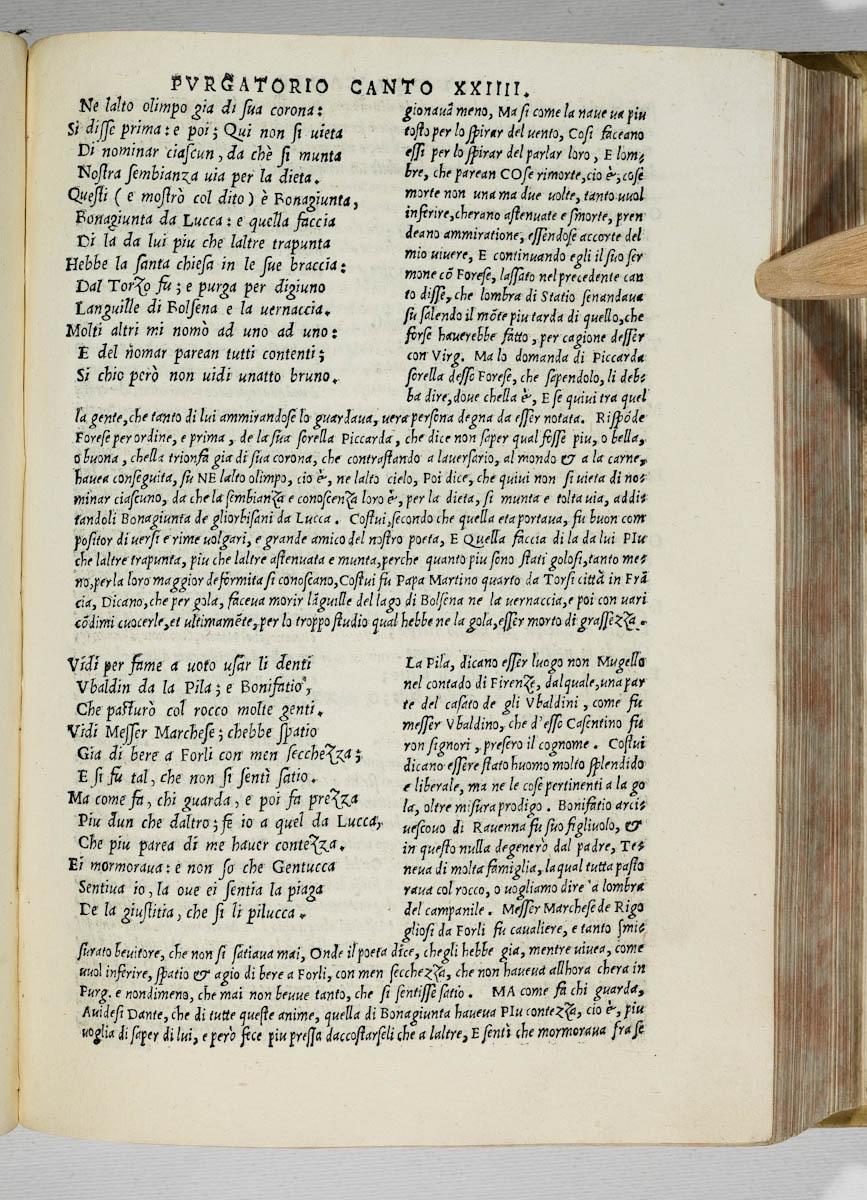 PVRGATORIO CANTO XXIIII.
Ne lalto olimpo gia di sua corona:
Si disse prima: e poi; Qui non si uieta
Di nominar ciascun, da chè si munta
Nostra sembianza uia per la dieta.
Questi (e mostrò col dito) è Bonagiunta,
Bonagiunta da Lucca: e quella faccia
Di la da lui piu che laltre trapunta
Hebbe la santa chiesa in le sue braccia:
Dal Torzo fu; e purga per digiuno
Languille di Bolsena e la uernaccia.
Molti altri mi nomò ad uno ad uno:
E del nomar parean tutti contenti;
Si chio però non uidi unatto bruno.
gionauã meno, Ma si come la naue ua piu
tosto per lo spirar del uento, Cosi faceano
essi per lo spirar del parlar loro, E lom-
bre, che parean COse rimorte, cio è, cose
morte non una ma due uolte, tanto uuol
inferire, cherano astenuate e smorte, pren
deano ammiratione, essendose accorte del
mio uiuere, E continuando egli il suo ser
mone cõ Forese, lassato nel precedente can
to disse, che lombra di Statio senandaua
su salendo il mõte piu tarda di quello, che
forse hauerebbe fatto, per cagione desser
con Virg. Ma lo domanda di Piccarda
sorella desso Forese, che sapendolo, li deb-
ba dire, doue chella è, E se quiui tra quel
la gente, che tanto di lui ammirandose lo guardaua, uera persona degna da esser notata. Rispõde
Forese per ordine, e prima, de la sua sorella Piccarda, che dice non saper qual fosse piu, o bella,
o buona, chella trionfa gia di sua corona, che contrastando a lauersario, al mondo & a la carne,
hauea conseguita, su NE lalto olimpo, cio è, ne lalto cielo, Poi dice, che quiui non si uieta di no-
minar ciascuno, da che la sembianza e conoscenza loro è, per la dieta, si munta e tolta uia, addi-
tandoli Bonagiunta de gliorbisani da Lucca. Costui, secondo che quella eta portaua, fu buon com
positor di uersi e rime uolgari, e grande amico del nostro poeta, E Quella faccia di la da lui PIu
che laltre trapunta, piu che laltre astenuata e munta, perche quanto piu sono stati golosi, tanto me-
no, per la loro maggior deformita si conoscano, Costui fu Papa Martino quarto da Torsi città in Frã
cia, Dicano, che per gola, faceua morir lãguille del lago di Bolsena ne la uernaccia, e poi con uari
cõdimi cuocerle, et ultimamẽte, per lo troppo studio qual hebbe ne la gola, esser morto di grassezza.
Vidi per fame a uoto usar li denti
Vbaldin da la Pila; e Bonifatio,
Che pasturò col rocco molte genti.
Vidi Messer Marchese; chebbe spatio
Gia di bere a Forli con men secchezza;
E si fu tal, che non si sentì satio.
Ma come fa, chi guarda, e poi fa prezza
Piu dun che daltro; fe io a quel da Lucca,
Che piu parea di me hauer contezza.
Ei mormoraua: e non so che Gentucca
Sentiua io, la oue ei sentia la piaga
De la giustitia, che si li pilucca.
La Pila, dicano esser luogo non Mugello
nel contado di Firenze, dalquale, una par
te del casato de gli Vbaldini, come fu
messer Vbaldino, che d'esso Casentino fu
ron signori, presero il cognome. Costui
dicano essere stato huomo molto splendido
e liberale, ma ne le cose pertinenti a la go
la, oltre misura prodigo. Bonifatio arci-
uescouo di Rauenna fu suo figliuolo, &
in questo nulla degenerò dal padre, Te-
neua di molta famiglia, la qual tutta pasto
raua col rocco, o uogliamo dire a lombra
del campanile. Messer Marchese de Rigo
gliosi da Forli fu caualiere, e tanto smi-
surato beuitore, che non si satiaua mai, Onde il poeta dice, chegli hebbe gia, mentre uiuea, come
uuol inferire, spatio & agio di bere a Forli, con men secchezza, che non haueua allhora chera in
Purg. e nondimeno, che mai non beuue tanto, che si sentisse satio. MA come fa chi guarda,
Auidesi Dante, che di tutte queste anime, quella di Bonagiunta haueua PIu contezza, cio è, piu
uoglia di saper di lui, e però fece piu pressa daccostarseli che a laltre, E sentì che mormoraua fra se